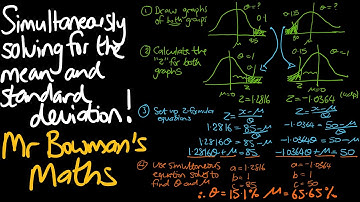 Simultaneously
solving for the
mean and
standard
deviation!
Mr Bowman's
Maths
① Draw graphs
of both groups
θ=?
0.1
85
μ
0.15
θ=?
50
μ
② Calculate the
"z" for both
graphs
0.1
0.15
μ=0
Z=1.2816
Z=-1.0364
③ Set up Z-formula
equations
Z=x-μ/θ
Z=x-μ/θ
1.2816=85-μ/θ
-1.0364=50-μ/θ
1.2816θ=85-μ
-1.0364θ=50-μ
1.2816θ+μ=85
-1.0364θ+μ=50
④ Use simultaneous
equation solver to
find θ and μ
a=1.2816
b=1
c=85
a=-1.0364
b=1
c=50
∴ θ=15.1% μ=65.65%